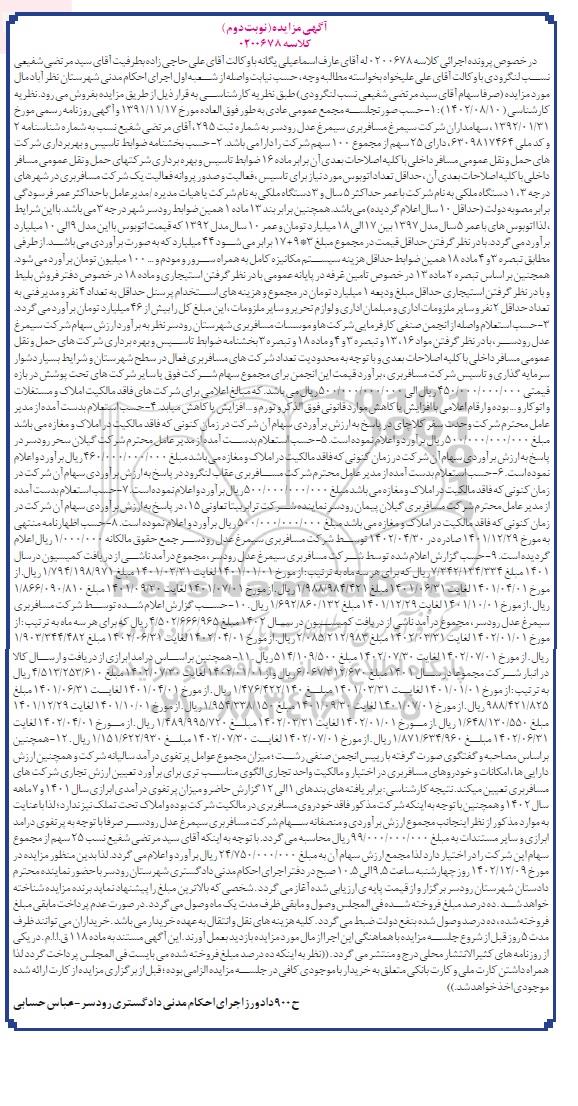 آگهی مزایده (نوبت دوم)
کلاسه ۰۲۰۰۶۷۸
در خصوص پرونده اجرائی کلاسه ۰۲۰۰۶۷۸ له آقای عارف اسماعیلی یگانه با وکالت آقای علی حاجی زاده بطرفیت آقای سید مرتضی شفیعی
نسب لنگرودی با وکالت آقای علی علیخواه بخواسته مطالبه وجه، حسب نیابت واصله از شعبه اول اجرای احکام مدنی شهرستان نظرآباد مال
مورد مزایده (صرفا سهام آقای سید مرتضی شفیعی نسب لنگرودی) طبق نظریه کارشناسی به قرار ذیل از طریق مزایده بفروش می رود. نظریه
کارشناسی (۱۴۰۲/۰۸/۱۰): ۱- حسب صورتجلسه مجمع عمومی عادی به طور فوق العاده مورخ ۱۳۹۱/۱۱/۱۷ و آگهی روزنامه رسمی مورخ
۱۳۹۲/۰۱/۳۱، سهامداران شرکت سیمرغ مسافربری سیمرغ عدل رودسر به شماره ثبت ۲۹۵، آقای مرتضی شفیع نسب به شماره شناسنامه ۲
و کد ملی ۶۳۰۹۸۱۷۴۶۴، دارای ۲۵ سهم از مجموع ۱۰۰ سهم شرکت را دارا می باشد. ۲- حسب بخشنامه ضوابط تاسیس و بهره برداری شرکت
های حمل و نقل عمومی مسافر داخلی با کلیه اصلاحات بعدی آن برابر ماده ۱۶ ضوابط تاسیس و بهره برداری شرکتهای حمل و نقل عمومی مسافر
داخلی با کلیه اصلاحات بعدی آن، حداقل تعداد اتوبوس مورد نیاز برای تاسیس، فعالیت و صدور پروانه فعالیت یک شرکت مسافربری در شهرهای
درجه ۳، ۱ دستگاه ملکی به نام شرکت با عمر حداکثر ۵ سال و ۳ دستگاه ملکی به نام شرکت یا هیات مدیره /مدیر عامل با حداکثر عمر فرسودگی
برابر مصوبه دولت (حداقل ۱۰ سال اعلام گردیده) می باشد. همچنین برابر بند ۱۳ ماده ۱ همین ضوابط رودسر شهر درجه ۳ می باشد. با این شرایط
، لذا اتوبوس های با عمر ۵ سال مدل ۱۳۹۷ بین ۱۷ الی ۱۸ میلیارد تومان و عمر ۱۰ سال مدل ۱۳۹۲ که قیمت اتوبوس با این مدل ۹ الی ۱۰ میلیارد
برآورد می گردد. با در نظر گرفتن حداقل قیمت در مجموع مبلغ ۳*۹+۱۷ برابر می شود ۴۴ میلیارد که به صورت برآوردی می باشد. از طرفی
مطابق تبصره ۳ و ۴ ماده ۱۸ همین ضوابط حداقل هزینه سیستم مکانیزه کامل به همراه سرور و مودم و ... ۱۰۰ میلیون تومان برآورد می شود.
همچنین بر اساس تبصره ۲ ماده ۱۳ در خصوص تامین غرفه در پایانه عمومی با در نظر گرفتن استیجاری و ماده ۱۸ در خصوص دفتر فروش بلیط
و با در نظر گرفتن استیجاری حداقل مبلغ ودیعه ۱ میلیارد تومان در مجموع و هزینه های استخدام پرسنل حداقل به تعداد ۴ نفر و مدیر فنی به
تعداد حداقل ۲ نفر و سایر ملزومات اداری و مبلمان اداری و لوازم تحریر و سایر ملزومات، این مبلغ کل را بیش از ۴۶ میلیارد تومان برآورد می گردد.
۳- حسب استعلام واصله از انجمن صنفی کارفرمایی شرکت ها و موسسات مسافربری شهرستان رودسر نظر به برآورد ارزش سهام شرکت سیمرغ
عدل رودسر، با در نظر گرفتن مواد ۱۳،۱۶ و تبصره ۳ و ۴ و ماده ۱۸ و تبصره ۳ بخشنامه ضوابط تاسیس و بهره برداری شرکت های حمل و نقل
عمومی مسافر داخلی با کلیه اصلاحات بعدی و با توجه به محدودیت تعداد شرکت های مسافربری فعال در سطح شهرستان و شرایط بسیار دشوار
سرمایه گذاری و تاسیس شرکت مسافربری، برآورد قیمت این انجمن برای مجموع سهام شرکت فوق یا سایر شرکت های تحت پوشش در بازه
قیمتی ۴۵۰/۰۰۰/۰۰۰/۰۰۰ ریال الی ۵۰۰/۰۰۰/۰۰۰/۰۰۰ ریال می باشد. که مبالغ اعلامی برای شرکت های فاقد مالکیت املاک و مستغلات
و اتوکار و ... بوده و ارقام اعلامی با افزایش یا کاهش موارد قانونی فوق الذکر و تورم و ... افزایش یا کاهش میابد. ۴- حسب استعلام بدست آمده از مدیر
عامل محترم شرکت وحدت سفر کلاچای در پاسخ به ارزش برآوردی سهام آن شرکت در زمان کنونی که فاقد مالکیت در املاک و مغازه می باشد
مبلغ ۵۰۰/۰۰۰/۰۰۰/۰۰۰ ریال برآورد و اعلام نموده است. ۵- حسب استعلام بدست آمده از مدیر عامل محترم شرکت گیلان سحر رودسر در
پاسخ به ارزش برآوردی سهام آن شرکت در زمان کنونی که فاقد مالکیت در املاک و مغازه می باشد مبلغ ۴۶۰/۰۰۰/۰۰۰/۰۰۰ ریال برآورد و اعلام
نموده است. ۶- حسب استعلام بدست آمده از مدیر عامل محترم شرکت مسافربری عقاب لنگرود در پاسخ به ارزش برآوردی سهام آن شرکت در
زمان کنونی که فاقد مالکیت در املاک و مغازه می باشد مبلغ ۵۰۰/۰۰۰/۰۰۰/۰۰۰ ریال برآورد و اعلام نموده است. ۷- حسب استعلام بدست آمده
از مدیر عامل محترم شرکت مسافربری گیلان پیمان رودسر نماینده شرکت ترابربیتا تعاونی ۱۵، در پاسخ به ارزش برآوردی سهام آن شرکت در
زمان کنونی که فاقد مالکیت در املاک و مغازه می باشد مبلغ ۵۰۰/۰۰۰/۰۰۰/۰۰۰ ریال برآورد و اعلام نموده است. ۸- حسب اظهارنامه منتهی
به مورخ ۱۴۰۱/۱۲/۲۹ صادره در ۱۴۰۲/۰۴/۳۰ توسط شرکت مسافربری سیمرغ عدل رودسر جمع حقوق مالکانه ۱/۰۰۰/۰۰۰ ریال اعلام
گردیده است. ۹- حسب گزارش اعلام شده توسط شرکت مسافربری سیمرغ عدل رودسر، مجموع درآمد ناشی از دریافت کمیسیون در سال
۱۴۰۱ مبلغ ۷/۳۴۲/۱۳۴/۳۳۴ ریال که برای هر سه ماه به ترتیب: از مورخ ۱۴۰۱/۰۱/۰۱ لغایت ۱۴۰۱/۰۳/۳۱ مبلغ ۱/۷۹۴/۱۹۸/۹۷۱ ریال. از مورخ
۱۴۰۱/۰۴/۰۱ لغایت ۱۴۰۱/۰۶/۳۱ مبلغ ۱/۹۸۸/۹۸۴/۴۲۱ ریال. از مورخ ۱۴۰۱/۰۷/۰۱ لغایت ۱۴۰۱/۰۹/۳۰ مبلغ ۱/۸۶۶/۰۹۰/۸۱۰
ریال. از مورخ ۱۴۰۱/۱۰/۰۱ لغایت ۱۴۰۱/۱۲/۲۹ مبلغ ۱/۶۹۲/۸۶۰/۱۳۲ ریال. ۱۰- حسب گزارش اعلام شده توسط شرکت مسافربری
سیمرغ عدل رودسر، مجموع درآمد ناشی از دریافت کمیسیون در سال ۱۴۰۲ مبلغ ۴/۵۰۲/۶۶۶/۹۶۵ ریال که برای هر سه ماه به ترتیب: از
مورخ ۱۴۰۲/۰۱/۰۱ لغایت ۱۴۰۲/۰۳/۳۱ مبلغ ۲/۰۸۵/۲۱۲/۹۸۳ ریال. از مورخ ۱۴۰۲/۰۴/۰۱ لغایت ۱۴۰۲/۰۶/۳۱ مبلغ ۱/۹۰۳/۳۴۴/۴۸۲
ریال. از مورخ ۱۴۰۲/۰۷/۰۱ لغایت ۱۴۰۲/۰۷/۳۰ مبلغ ۵۱۴/۱۰۹/۵۰۰ ریال. ۱۱- همچنین بر اساس درآمد ابرازی از دریافت و ارسال کالا
در انبار شرکت مجموعا در سال ۱۴۰۱ مبلغ ۶/۰۶۷/۳۱۲/۶۷۰ ریال و از ۱۴۰۲/۰۱/۰۱ لغایت ۱۴۰۲/۰۷/۳۰ مبلغ ۴/۵۱۳/۲۵۳/۶۱۰ ریال
به ترتیب: از مورخ ۱۴۰۱/۰۱/۰۱ لغایت ۱۴۰۱/۰۳/۳۱ مبلغ ۱/۴۷۶/۴۲۲/۱۴۰ ریال. از مورخ ۱۴۰۱/۰۴/۰۱ لغایت ۱۴۰۱/۰۶/۳۱ مبلغ
۹۸۸/۴۲۱/۸۲۵ ریال. از مورخ ۱۴۰۱/۰۷/۰۱ لغایت ۱۴۰۱/۰۹/۳۰ مبلغ ۱/۹۵۴/۳۳۸/۱۵۰ ریال. از مورخ ۱۴۰۱/۱۰/۰۱ لغایت ۱۴۰۱/۱۲/۲۹
مبلغ ۱/۶۴۸/۱۳۰/۵۵۰ ریال. از مورخ ۱۴۰۲/۰۱/۰۱ لغایت ۱۴۰۲/۰۳/۳۱ مبلغ ۱/۴۸۹/۹۹۵/۷۲۰ ریال. از مورخ ۱۴۰۲/۰۴/۰۱ لغایت
۱۴۰۲/۰۶/۳۱ مبلغ ۱/۸۷۱/۶۳۴/۹۶۰ ریال. از مورخ ۱۴۰۲/۰۷/۰۱ لغایت ۱۴۰۲/۰۷/۳۰ مبلغ ۱/۱۵۱/۶۲۲/۹۳۰ ریال. ۱۲- همچنین
بر اساس مصاحبه و گفتگوی صورت گرفته با رییس انجمن صنفی رشت؛ میزان مجموع عوامل پرتفوی درآمد سالیانه شرکت و همچنین ارزش
دارایی ها، امکانات و خودروهای مسافربری در اختیار و مالکیت واحد تجاری الگوی مناسب تری برای برآورد تعیین ارزش تجاری شرکت های
مسافربری تعیین میکند. نتیجه کارشناسی: برابر یافته های بندهای ۱ الی ۱۲ گزارش حاضر و میزان پرتفوی درآمدی ابرازی سال ۱۴۰۱ و ۷ ماهه
سال ۱۴۰۲ و همچنین با توجه به اینکه شرکت مذکور فاقد خودروی مسافربری در مالکیت شرکت بوده و املاک تحت تملک نیز ندارد؛ لذا با عنایت
به موارد مذکور از نظر اینجانب مجموع ارزش برآوردی و منصفانه سهام شرکت مسافربری سیمرغ عدل رودسر صرفا با توجه به پرتفوی درآمد
ابرازی و سایر مستندات به مبلغ ۹۹/۰۰۰/۰۰۰/۰۰۰ ریال محاسبه می گردد. با توجه به اینکه آقای سید مرتضی شفیع نسب ۲۵ سهم از مجموع
سهام این شرکت را در اختیار دارد لذا مجمع ارزش سهام آن به مبلغ ۲۴/۷۵۰/۰۰۰/۰۰۰ ریال برآورد و اعلام می گردد. لذا بدین منظور مزایده در
مورخ ۱۴۰۲/۱۲/۰۹ روز چهارشنبه ساعت ۹.۵ الی ۱۰.۵ صبح در دفتر اجرای احکام مدنی دادگستری شهرستان رودسر با حضور نماینده محترم
دادستان شهرستان رودسر برگزار و از قیمت پایه ی ارزیابی شده آغاز می گردد. شخصی که بالاترین مبلغ را پیشنهاد نماید برنده مزایده شناخته
خواهد شد. ده درصد مبلغ فروخته شده فی المجلس وصول و مابقی ظرف مدت یک ماه وصول می گردد. در صورت عدم پرداخت مابقی مبلغ
فروخته شده، ده درصد وصول شده بنفع دولت ضبط می گردد. کلیه هزینه های نقل و انتقال به عهده خریدار می باشد. خریداران می توانند ظرف
مدت ۵ روز قبل از شروع جلسه مزایده با هماهنگی این اجرا از مال مورد مزایده بازدید بعمل آورند. این آگهی مستند به ماده ۱۱۸ ق.ا.ا.م. در یکی
از روزنامه های کثیرالانتشار محلی درج و منتشر می گردد. ((نظر به اینکه ده درصد مبلغ فروخته شده می بایست فی المجلس پرداخت گردد لذا
همراه داشتن کارت ملی و کارت بانکی متعلق به خریدار با موجودی کافی در جلسه مزایده الزامی بوده؛ قبل از برگزاری مزایده از کارت ارائه شده
موجودی اخذ خواهد شد.))
ح۹۰۰ دادورز اجرای احکام مدنی دادگستری رودسر - عباس حسابی